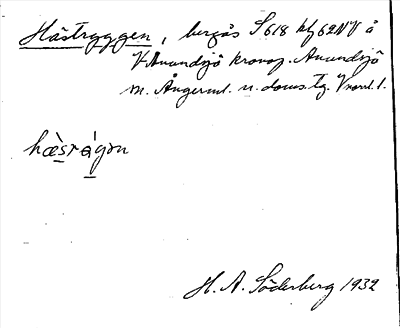 Hästryggen, bergås S 618 kf 62 NV å
V. Anundsjö kronop. Anundsjö
m. Ångerml. n. doms. tg. Vnorrl. l.
hæ̀srágɔn
H. A. Söderberg 1932